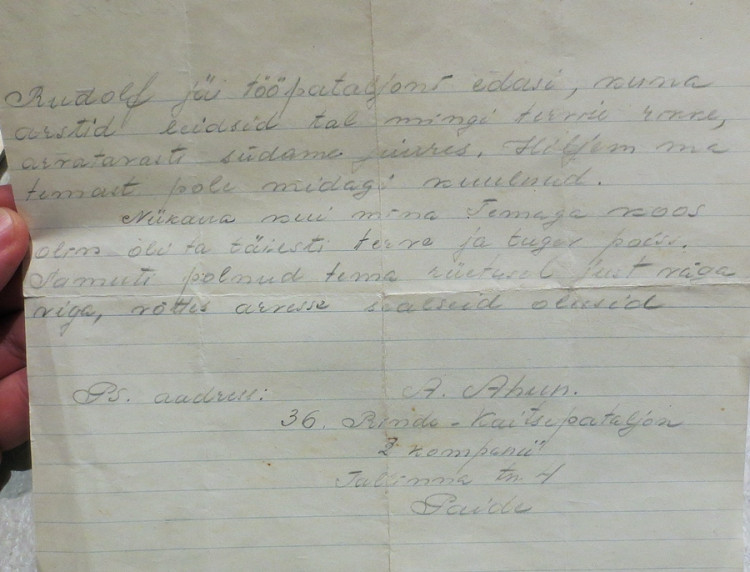 Rudolf jäi tööpataljoni edasi, kuna
arstid leidsid tal mingi tervise rikke,
arvatavasti südame juures. Hiljem ma
temast pole midagi kuulnud.
Niikaua kui mina Temaga koos
olin oli ta täiesti terve ja tugev poiss.
Samuti polnud tema riietusel just väga
viga, võttes arvesse sealseid olusid
Ps. aadress: A. Ahun.
36. Rinde-Kaitsepataljon
2 kompanii
Tallinna tn. 4
Paide